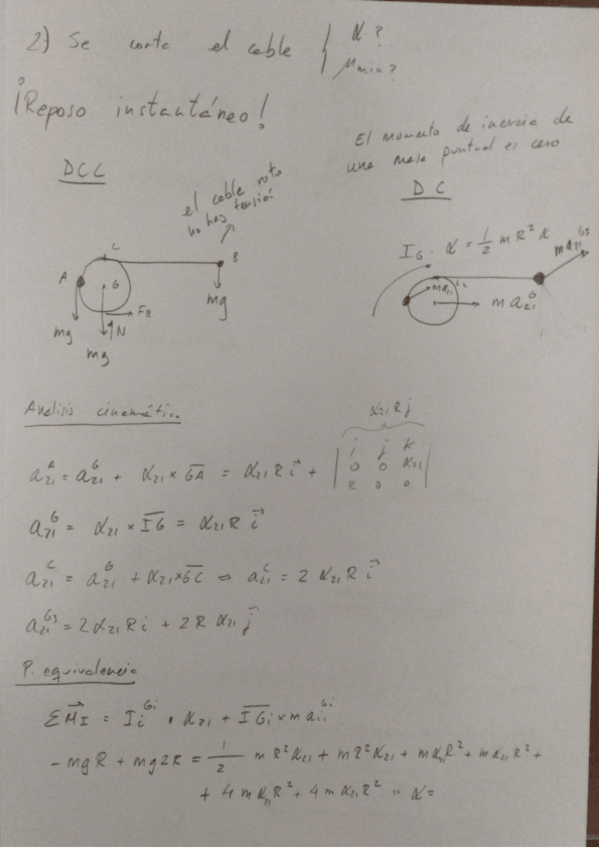 2) Se corta el cable { α?
μmin?
¡Reposo instantáneo!
El momento de inercia de
una masa puntual es cero
DCL
DC
el cable roto
no hay tensión
C
A
G
B
FR
N
mg
mg
mg
IG · α = 1/2 m R² α
m a21^G3
m a21^G2
m a21^G
Analisis cinemático
α21 R j
a21^A = a21^G + α21 × GA = α21 R i + | i j k |
| 0 0 α21 |
| R 0 0 |
a21^G = α21 × IG = α21 R i
a21^C = a21^G + α21 × GC ⇒ a21^C = 2 α21 R i
a21^G3 = 2 α21 R i + 2 R α21 j
P. equivalencia
Σ MI = Ii^Gi · α21 + IGi × m a21^Gi
- mg R + mg 2R = 1/2 m R² α21 + m R² α21 + m α21 R² + m α21 R² +
+ 4 m α21 R² + 4 m α21 R² ⇒ α =